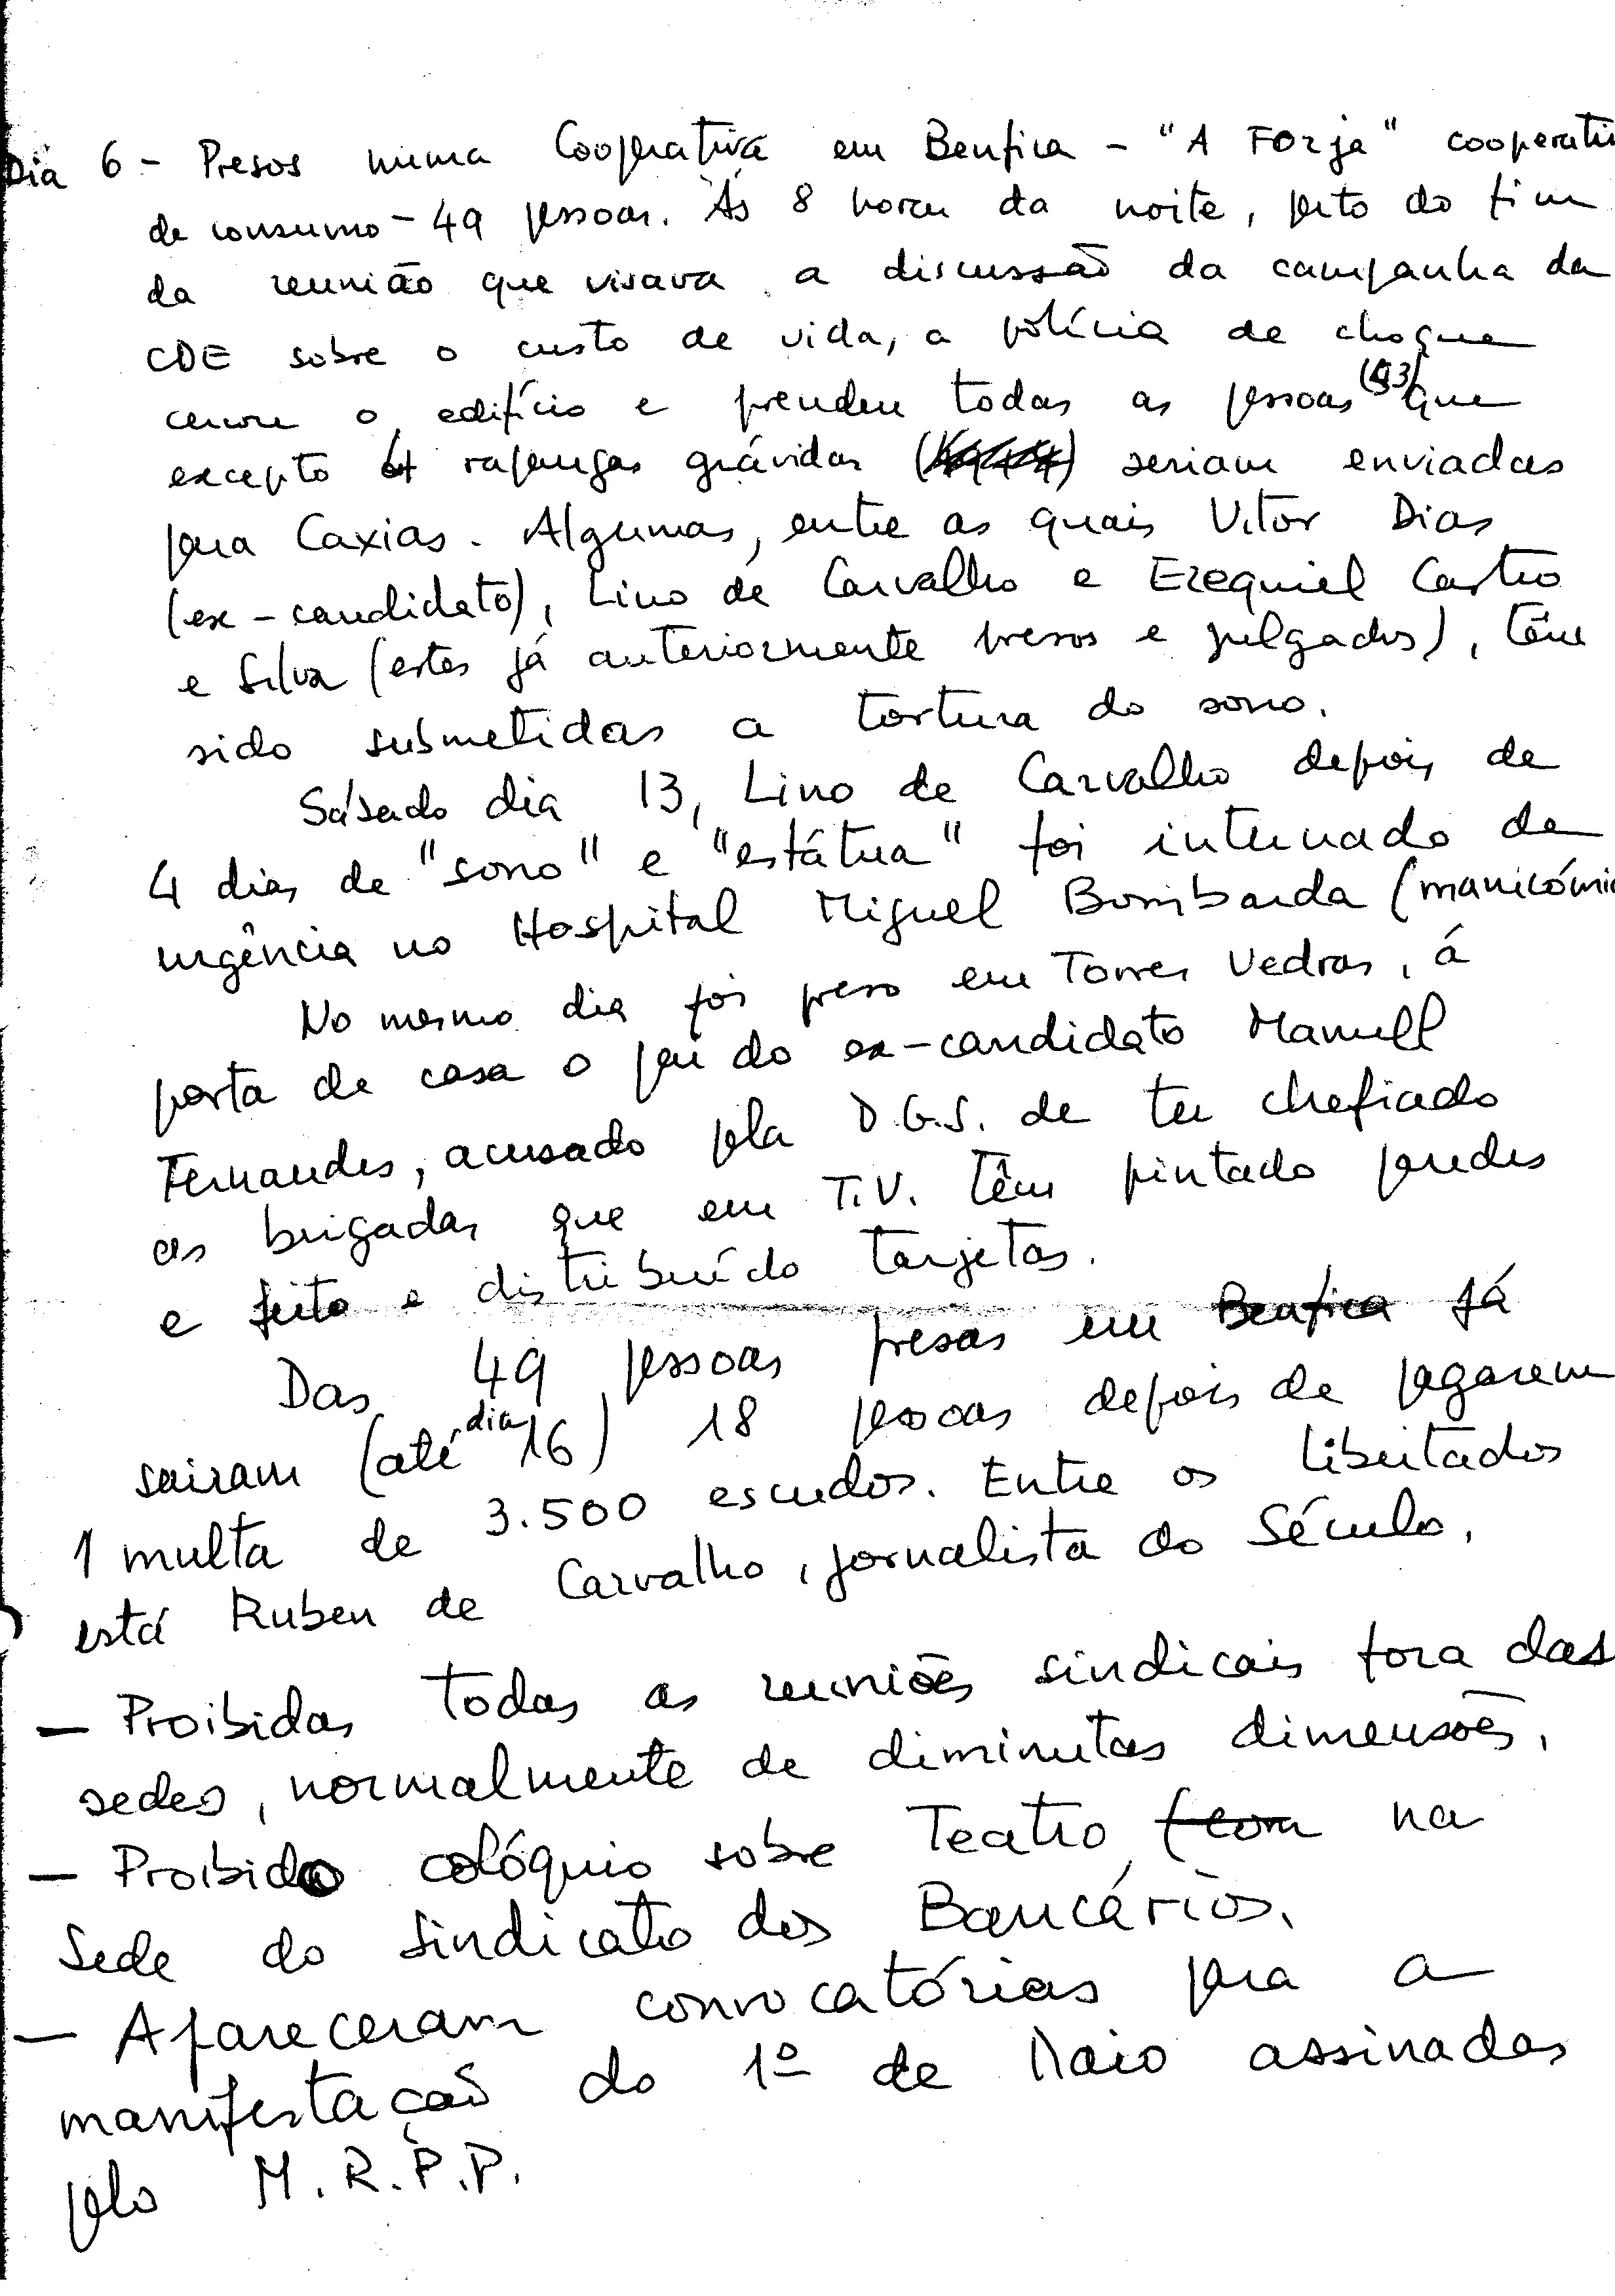 Dia 6 - Presos numa Cooperativa em Benfica - "A Forja" cooperati
de consumo - 49 pessoas. Às 8 horas da noite, perto do fim
da reunião que visava a discussão da campanha da
CDE sobre o custo de vida, a polícia de choque
cercou o edifício e prendeu todas as pessoas que
excepto 4 raparigas grávidas seriam enviadas
para Caxias. Algumas, entre as quais Vitor Dias
(ex-candidato), Lino de Carvalho e Ezequiel Castro
e Silva (estes já anteriormente presos e julgados), têm
sido submetidas a tortura do sono.
Sábado dia 13, Lino de Carvalho depois de
4 dias de "sono" e "estátua" foi internado de
urgência no Hospital Miguel Bombarda (manicómio
No mesmo dia foi preso em Torres Vedras, á
porta de casa o pai do ex-candidato Manuel
Fernandes, acusado pela D.G.S. de ter chefiado
as brigadas que em T.V. têm pintado paredes
e feito e distribuído tarjetas.
Das 49 pessoas presas em Benfica já
sairam (até dia 16) 18 pessoas depois de pagarem
1 multa de 3.500 escudos. Entre os libertados
está Ruben de Carvalho, jornalista do Século.
- Proibidas todas as reuniões sindicais fora das
sedes, normalmente de diminutas dimensões.
- Proibido colóquio sobre Teatro, (com na
Sede do Sindicato dos Bancários.
- Apareceram convocatórias para a
manifestação do 1º de Maio assinadas
pelo M.R.P.P.